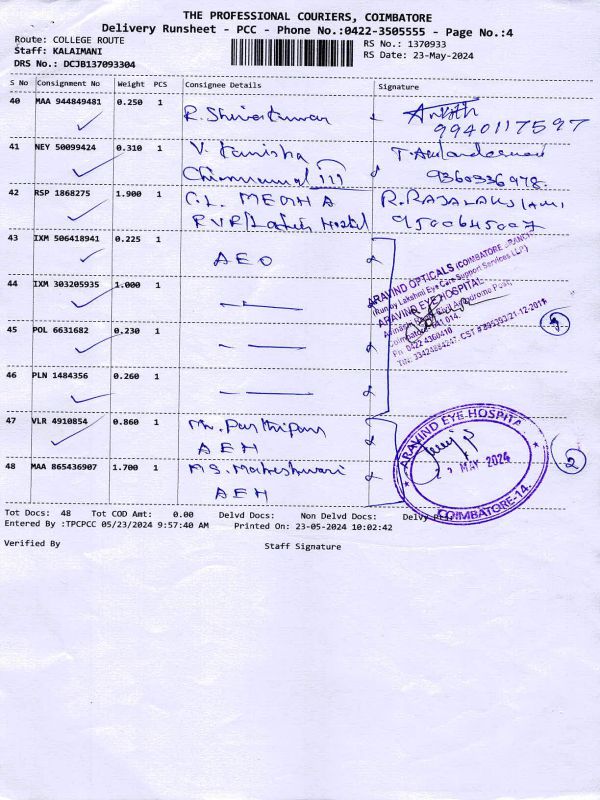 THE PROFESSIONAL COURIERS, COIMBATORE
Delivery Runsheet - PCC - Phone No.:0422-3505555 - Page No.:4
Route: COLLEGE ROUTE
Staff: KALAIMANI
DRS No.: DCJB137093304
RS No.: 1370933
RS Date: 23-May-2024
S No Consignment No Weight PCS Consignee Details Signature
40 MAA 944849481 0.250 1 R. Shivakumar
9940117597
41 NEY 50099424 0.310 1 V. Tanisha
9360336978.
42 RSP 1868275 1.900 1 C.L. MEGHA R. RAJALAKSHMI
RVR/Ladies Hostel 9500645007
43 IXM 506418941 0.225 1 AEO
44 IXM 303205935 1.000 1
45 POL 6631682 0.230 1
46 PLN 1484356 0.260 1
ARAVIND OPTICALS (COIMBATORE BRANCH)
(Run by Lakshmi Eye Care Support Services LLP)
ARAVIND EYE HOSPITAL
Coimbatore - 641 014.
Ph: 0422 4360410
47 VLR 4910854 0.860 1 Mr. Parthipan
AEH
48 MAA 865436907 1.700 1 MS. Maheshwari
AEH
ARAVIND EYE HOSPITAL
MAY 2024
COIMBATORE-14.
2
Tot Docs: 48 Tot COD Amt: 0.00 Delvd Docs: Non Delvd Docs:
Entered By :TPCPCC 05/23/2024 9:57:40 AM Printed On: 23-05-2024 10:02:42
Verified By Staff Signature